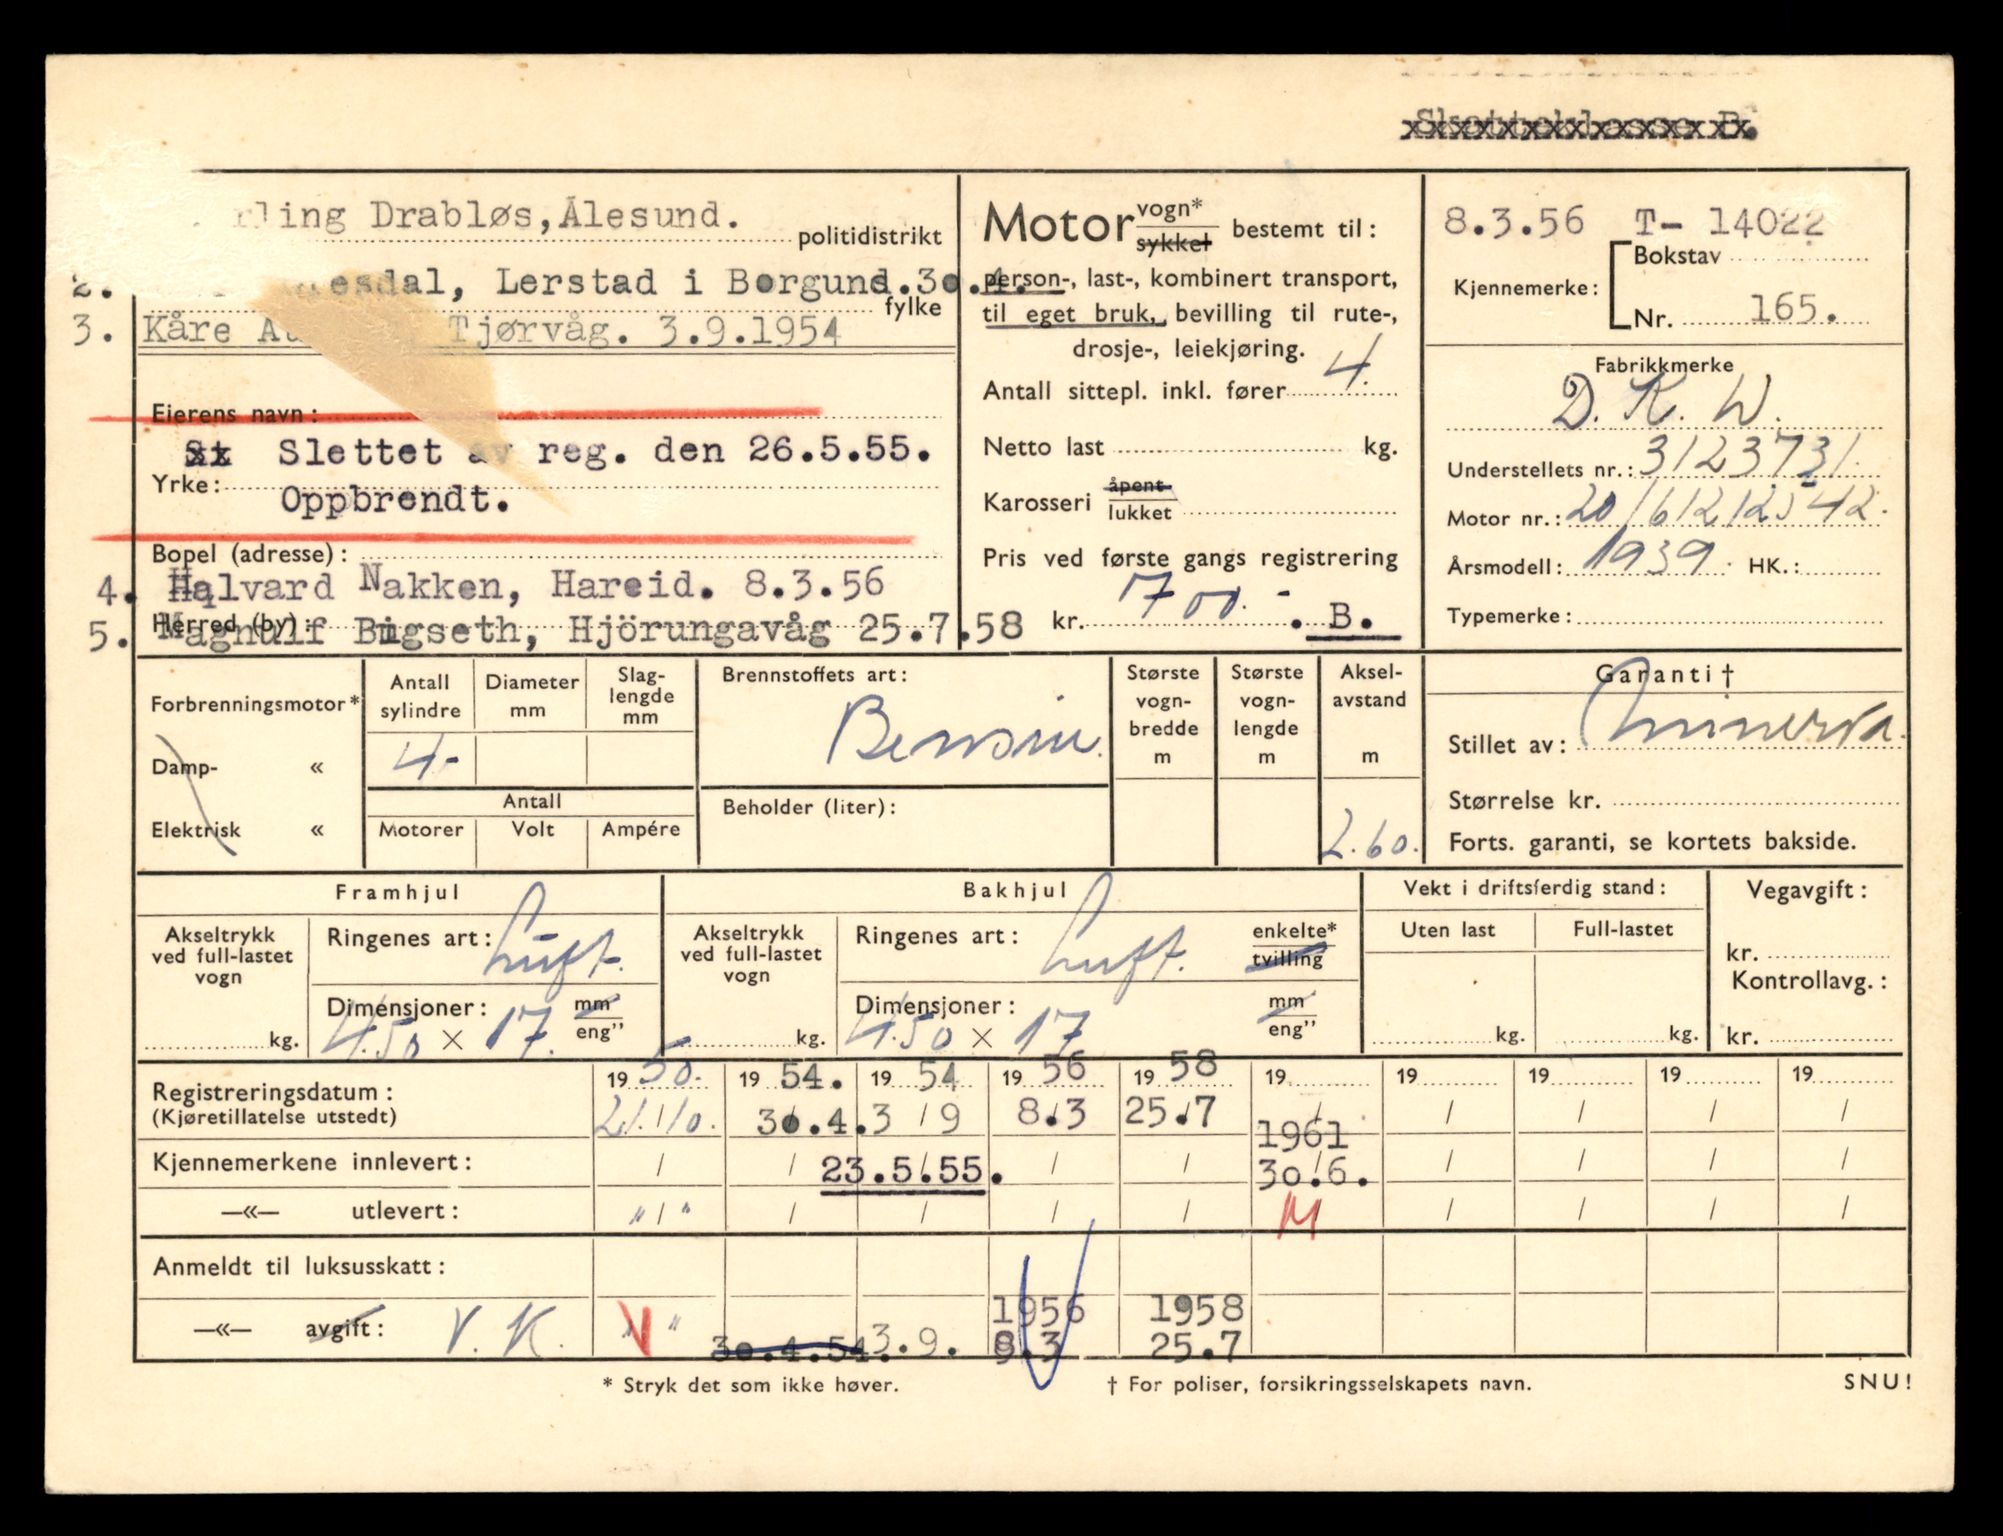 Skatteklasse B.
rling Drabløs, Ålesund.
politidistrikt
2. esdal, Lerstad i Borgund. 30.4.
fylke
3. Kåre Tjørvåg. 3.9.1954
Eierens navn:
Slettet av reg. den 26.5.55.
Yrke:
Oppbrendt.
Bopel (adresse):
4. Halvard Nakken, Hareid. 8.3.56
Herred (by):
5. Magnulf Bigseth, Hjörungavåg 25.7.58
Motor vogn* sykkel bestemt til:
person-, last-, kombinert transport,
til eget bruk, bevilling til rute-,
drosje-, leiekjøring.
Antall sittepl. inkl. fører 4.
Netto last kg.
Karosseri åpent lukket
Pris ved første gangs registrering
kr. 1700.- . B.
8.3.56 T- 14022
Bokstav
Kjennemerke:
Nr. 165.
Fabrikkmerke
D. K. W.
Understellets nr.: 3123731.
Motor nr.:
Årsmodell: 1939. HK.:
Typemerke:
Forbrenningsmotor*
Damp- «
Elektrisk «
Antall sylindre
Diameter mm
Slag-lengde mm
4.-
Antall
Motorer Volt Ampére
Brennstoffets art:
Bensin.
Beholder (liter):
Største vogn-bredde m
Største vogn-lengde m
Aksel-avstand m
2.60.
Garanti †
Stillet av: Minerva.
Størrelse kr.
Forts. garanti, se kortets bakside.
Framhjul
Akseltrykk ved full-lastet vogn
kg.
Ringenes art: Luft.
Dimensjoner: mm
4.50 × 17. eng”
Bakhjul
Akseltrykk ved full-lastet vogn
kg.
Ringenes art: Luft. enkelte* tvilling
Dimensjoner: mm
4.50 × 17 eng”
Vekt i driftsferdig stand:
Uten last Full-lastet
kg. kg.
Vegavgift:
kr.
Kontrollavg.:
kr.
Registreringsdatum: 19 50. 19 54. 19 54 19 56 19 58 19 19 19 19 19
(Kjøretillatelse utstedt) 21./10. 30.4. 3/9 8.3 25.7 / / / / /
1961
Kjennemerkene innlevert: / / 23.5.55. / / 30.6. / / / /
—«— utlevert: " / " / / / / M / / / /
Anmeldt til luksusskatt:
1956 1958
—«— avgift: V. K. " V " 30.4.54. 3.9. 8.3 25.7
* Stryk det som ikke høver.
† For poliser, forsikringsselskapets navn.
SNU!